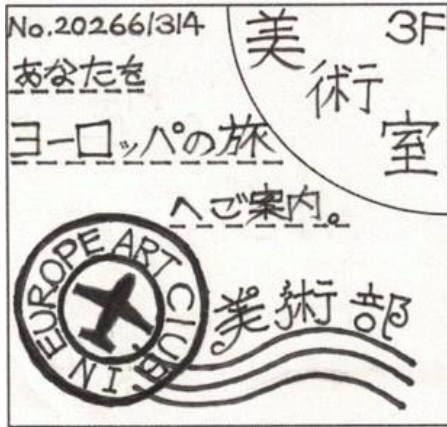 No.202661314
あなたを
ヨーロッパの旅
へご案内。
美術室
3F
EUROPE ART CLUB IN
美術部